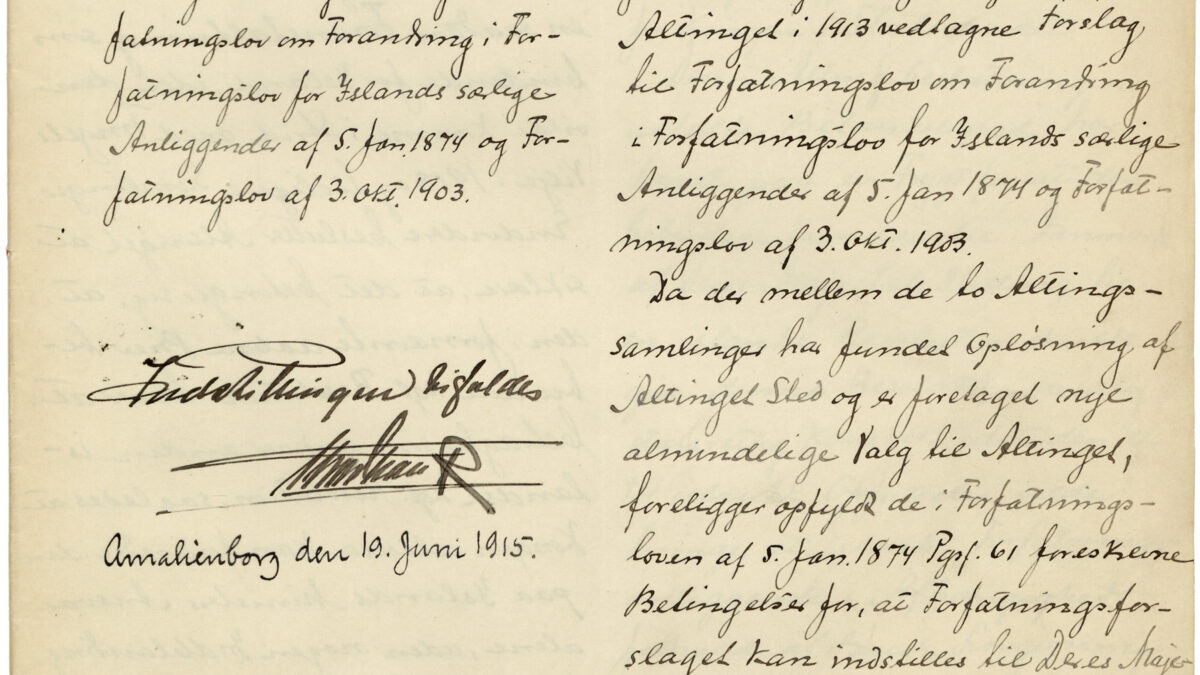 fatningslov om Forandring i For-
fatningslov for Islands særlige
Anliggender af 5. Jan. 1874 og For-
fatningslov af 3. Okt. 1903.
Indstillingen bifaldes
Christian R
Amalienborg den 19. Juni 1915.
Altinget i 1913 vedtagne Forslag
til Forfatningslov om Forandring
i Forfatningslov for Islands særlige
Anliggender af 5. Jan 1874 og Forfat-
ningslov af 3. Okt. 1903.
Da der mellem de to Altings-
samlinger har fundet Opløsning af
Altinget Sted og er foretaget nye
almindelige Valg til Altinget,
foreligger opfyldt de i Forfatnings-
loven af 5. Jan. 1874 Pgrf. 61 foreskrevne
Betingelser for, at Forfatningsfor-
slaget kan indstilles til Deres Maje-